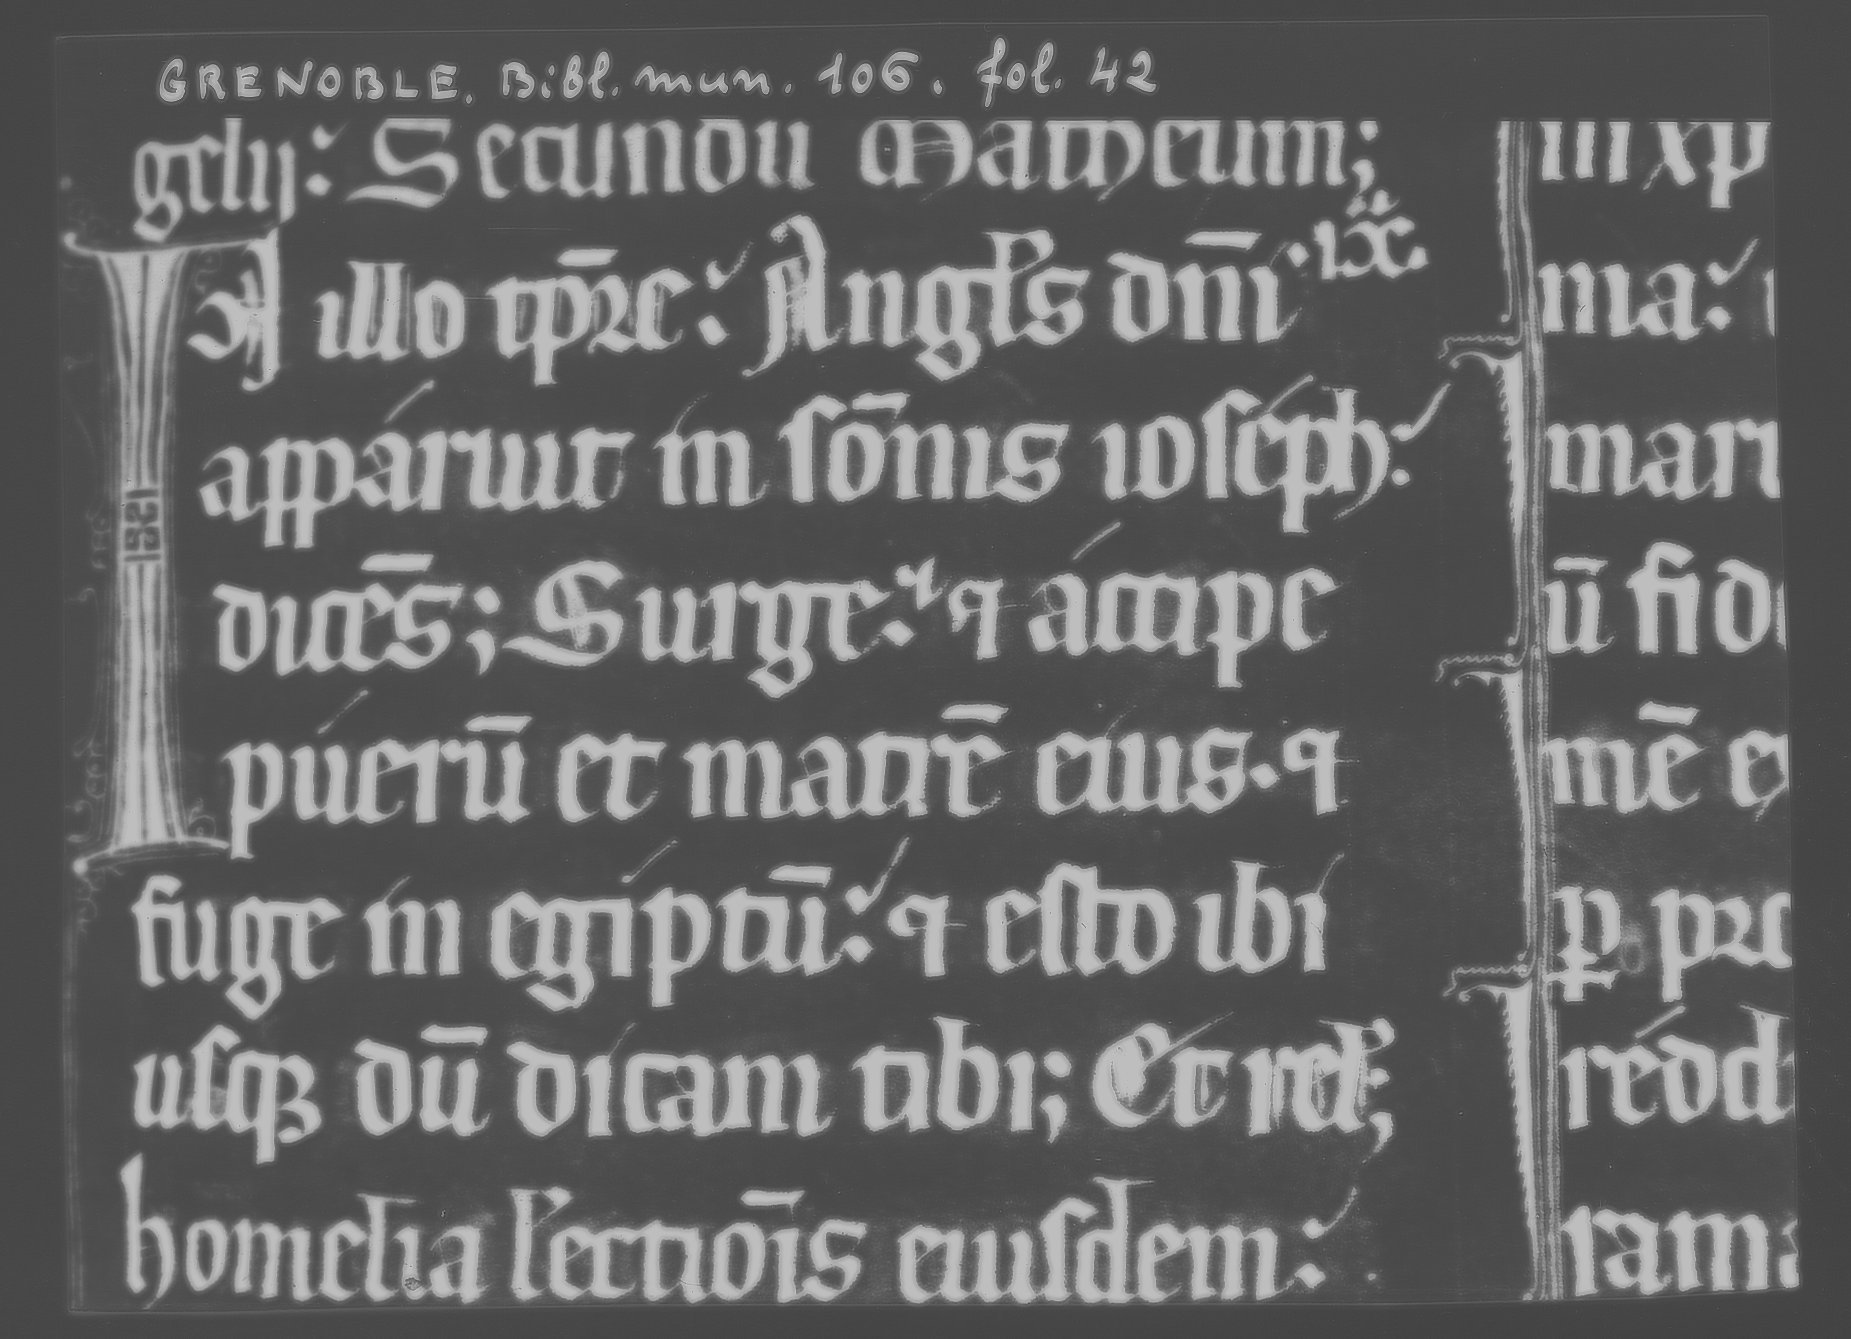 GRENOBLE. Bibl. mun. 106. fol. 42
gelij: Secundu Matheum;
IN illo tp̄re: Angl's dn̄i · ix
apparuit in sōnis ioseph:
dicēs; Surge: ⁊ accipe
puerū et matrē eius. ⁊
fuge in egiptū: ⁊ esto ibi
usqꝫ dū dicam tibi; Et rel';
homelia lectiōis eiusdem:
in xp
ma:
mari
ū fid
mē e
ꝑ pro
redd
rama